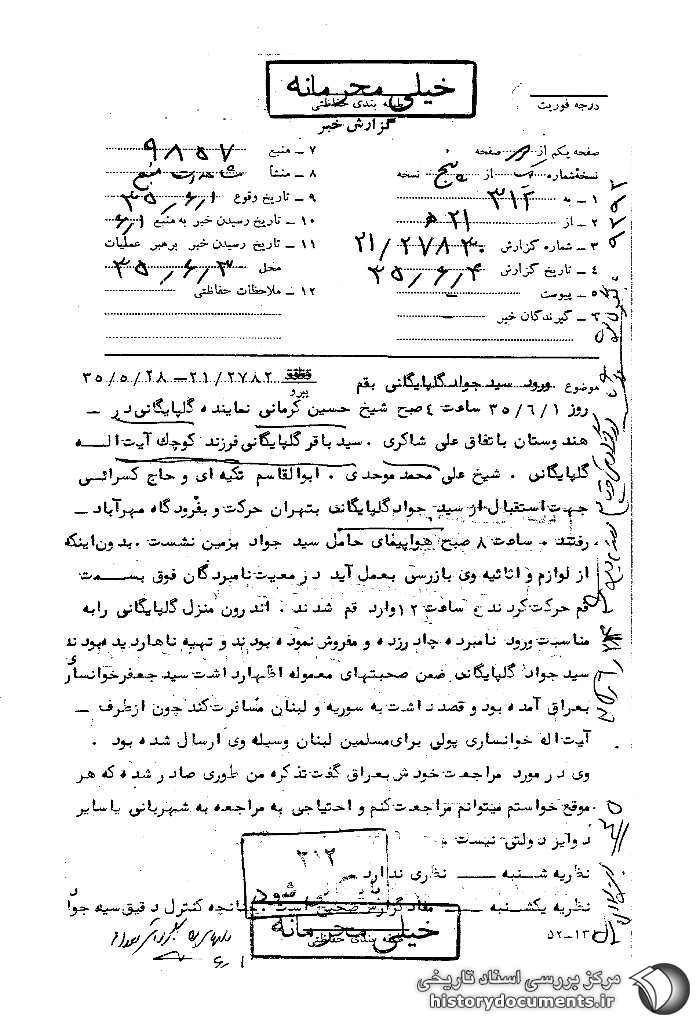 خیلی محرمانه
طبقه بندی حفاظتی
گزارش خبر
درجه فوریت
صفحه یکم از صفحه
نسخه شماره از پنج نسخه
۱ ـ به ۳۱۲
۲ ـ از ۲۱ ه
۳ ـ شماره گزارش ۲۱/۲۷۸۳۰
۴ ـ تاریخ گزارش ۳۵/۶/۴
۵ ـ پیوست
۶ ـ گیرندگان خبر
۷ ـ منبع ۹۸۵۷
۸ ـ منشأ مشاهدات منبع
۹ ـ تاریخ وقوع ۳۵/۶/۱
۱۰ ـ تاریخ رسیدن خبر به منبع ۶/۱
۱۱ ـ تاریخ رسیدن خبر برهبر عملیات
محل ۳۵/۶/۳
۱۲ ـ ملاحظات حفاظتی
موضوع ورود سید جواد گلپایگانی بقم
پیرو ۲۱/۲۷۸۲ ـ ۳۵/۵/۲۸
روز ۳۵/۶/۱ ساعت ۴ صبح شیخ حسین کرمانی نماینده گلپایگانی در ـ
هندوستان باتفاق علی شاکری . سید باقر گلپایگانی فرزند کوچک آیت اله
گلپایگانی . شیخ علی محمد موحدی . ابوالقاسم تکیه ای و حاج کسرائی
جهت استقبال از سید جواد گلپایگانی بتهران حرکت و بفرودگاه مهرآباد ـ
رفتند . ساعت ۸ صبح هواپیمای حامل سید جواد بزمین نشست . بدون اینکه
از لوازم و اثاثیه وی بازرسی بعمل آید در معیت نامبردگان فوق بسمت
قم حرکت کردند و ساعت ۱۲ وارد قم شدند . اندرون منزل گلپایگانی را به
مناسبت ورود نامبرده چادر زده و مفروش نموده بودند و تهیه ناهار دیده بودند
سید جواد گلپایگانی ضمن صحبتهای معموله اظهار داشت سید جعفر خوانساری
بعراق آمده بود و قصد داشت به سوریه و لبنان مسافرت کند چون از طرف ـ
آیت اله خوانساری پولی برای مسلمین لبنان وسیله وی ارسال شده بود .
وی در مورد مراجعت خودش بعراق گفت تذکره من طوری صادر شده که هر
موقع خواستم میتوانم مراجعت کنم و احتیاجی به مراجعه به شهربانی یا سایر
دوایر دولتی نیست .
نظریه شنبه ـــ نظری ندارد
نظریه یکشنبه ـــ مفاد گزارش صحیح است . چنانچه کنترل دقیق سید جواد
۳۱۲
خیلی محرمانه
طبقه بندی حفاظتی
۵۲-۱۳
۶/۱
مرکز بررسی اسناد تاریخی
historydocuments.ir